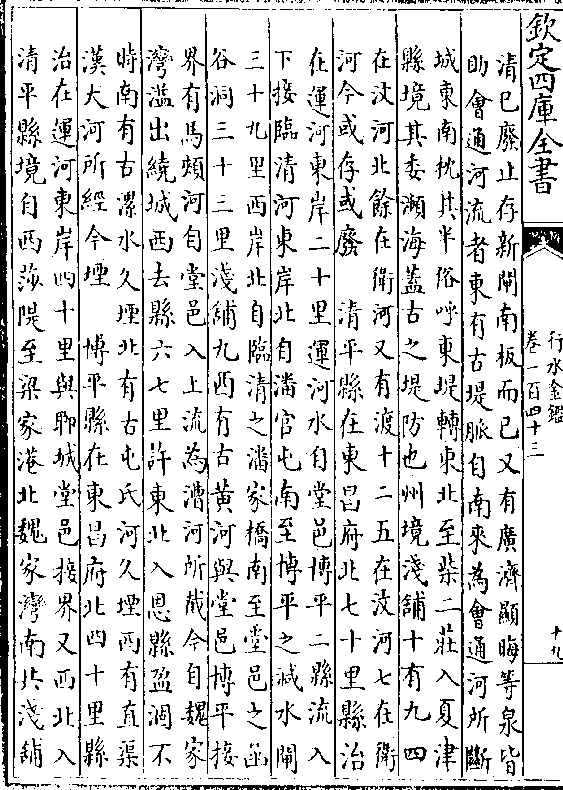 欽定四庫全書
行水金鑑
卷一百四十三
十九
清已廢止存新閘南板而已又有廣濟顯晦等泉皆
助會通河流者東有古堤脈自南來為會通河所斷
城東南枕其半俗呼東堤轉東北至柴二莊入夏津
縣境其委瀕海蓋古之堤防也州境淺舖十有九四
在汶河北餘在衛河又有渡十二五在汶河七在衛
河今或存或廢　清平縣在東昌府北七十里縣治
在運河東岸二十里運河水自堂邑博平二縣流入
下接臨清河東岸北自潘官屯南至博平之減水閘
三十九里西岸北自臨清之潘家橋南至堂邑之函
谷洞三十三里淺舖九西有古黄河與堂邑博平接
界有馬頰河自堂邑入上流為漕河所截今自魏家
灣溢出繞城西去縣六七里許東北入恩縣盈涸不
時南有古漯水久堙北有古屯氏河久堙西有直渠
漢大河所經今堙　博平縣在東昌府北四十里縣
治在運河東岸四十里與聊城堂邑接界又西北入
清平縣境自西莎隄至梁家港北魏家灣南淺舖